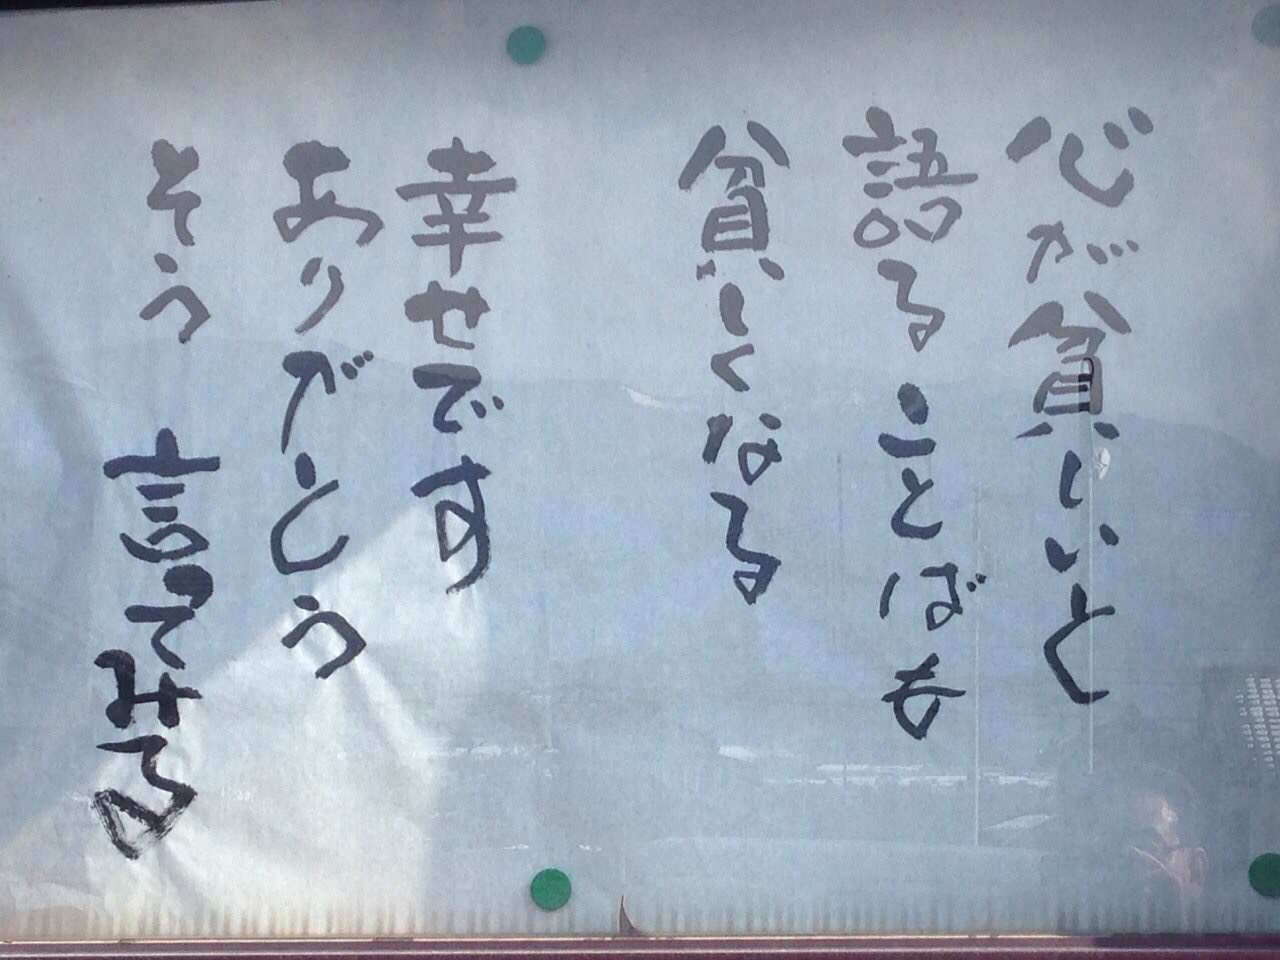 心が貧しいと
語ることばも
貧しくなる
幸せです
ありがとう
そう 言ってみる